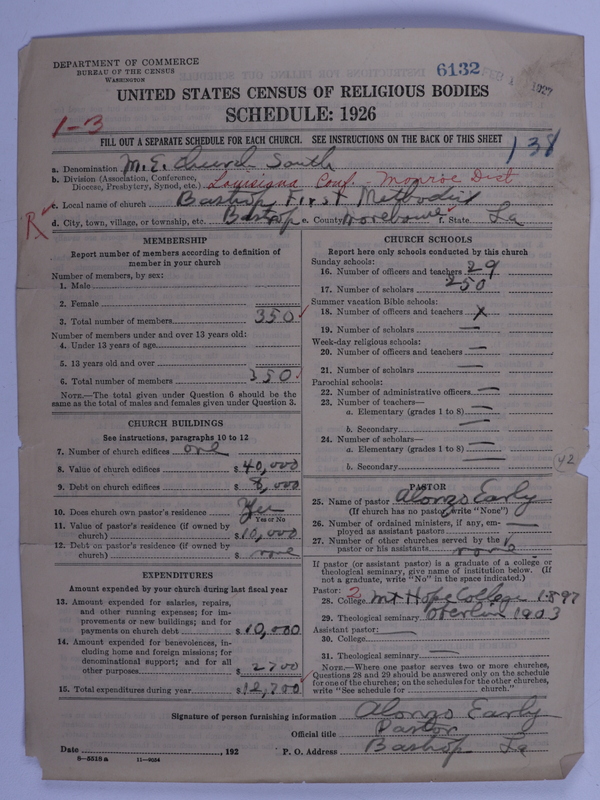 DEPARTMENT OF COMMERCE
BUREAU OF THE CENSUS
WASHINGTON
6132
1927
UNITED STATES CENSUS OF RELIGIOUS BODIES
SCHEDULE: 1926
1-3
FILL OUT A SEPARATE SCHEDULE FOR EACH CHURCH. SEE INSTRUCTIONS ON THE BACK OF THIS SHEET
138
a. Denomination M.E. Church South
b. Division (Association, Conference, Diocese, Presbytery, Synod, etc.) Louisiana Conf - Monroe Dist
c. Local name of church Bastrop First Methodist
d. City, town, village, or township, etc. Bastrop e. County Morehouse f. State La
MEMBERSHIP
Report number of members according to definition of member in your church
Number of members, by sex:
1. Male
2. Female
3. Total number of members 350
Number of members under and over 13 years old:
4. Under 13 years of age
5. 13 years old and over
6. Total number of members 350
NOTE.—The total given under Question 6 should be the same as the total of males and females given under Question 3.
CHURCH BUILDINGS
See instructions, paragraphs 10 to 12
7. Number of church edifices one
8. Value of church edifices $ 40,000
9. Debt on church edifices $ 8,000
10. Does church own pastor's residence? Yes
Yes or No
11. Value of pastor's residence (if owned by church) $ 10,000
12. Debt on pastor's residence (if owned by church) $ none
EXPENDITURES
Amount expended by your church during last fiscal year
13. Amount expended for salaries, repairs, and other running expenses; for improvements or new buildings; and for payments on church debt $ 10,000
14. Amount expended for benevolences, including home and foreign missions; for denominational support; and for all other purposes $ 2700
15. Total expenditures during year $ 12,700
CHURCH SCHOOLS
Report here only schools conducted by this church
Sunday schools:
16. Number of officers and teachers 29
17. Number of scholars 250
Summer vacation Bible schools:
18. Number of officers and teachers x
19. Number of scholars —
Week-day religious schools:
20. Number of officers and teachers —
21. Number of scholars —
Parochial schools:
22. Number of administrative officers —
23. Number of teachers—
a. Elementary (grades 1 to 8) —
b. Secondary —
24. Number of scholars—
a. Elementary (grades 1 to 8) —
b. Secondary —
42
PASTOR
25. Name of pastor Alonzo Early
(If church has no pastor, write "None")
26. Number of ordained ministers, if any, employed as assistant pastors —
27. Number of other churches served by the pastor or his assistants none
If pastor (or assistant pastor) is a graduate of a college or theological seminary, give name of institution below. (If not a graduate, write "No" in the space indicated.)
Pastor: 2
28. College Mt Hope College 1897
29. Theological seminary Oberlin 1903
Assistant pastor:
30. College —
31. Theological seminary —
NOTE.—Where one pastor serves two or more churches, Questions 28 and 29 should be answered only on the schedule for one of the churches; on the schedules for the other churches, write "See schedule for ______ church."
Signature of person furnishing information Alonzo Early
Official title Pastor
Date , 192 P. O. Address Bastrop La
8-5518a 11-9034